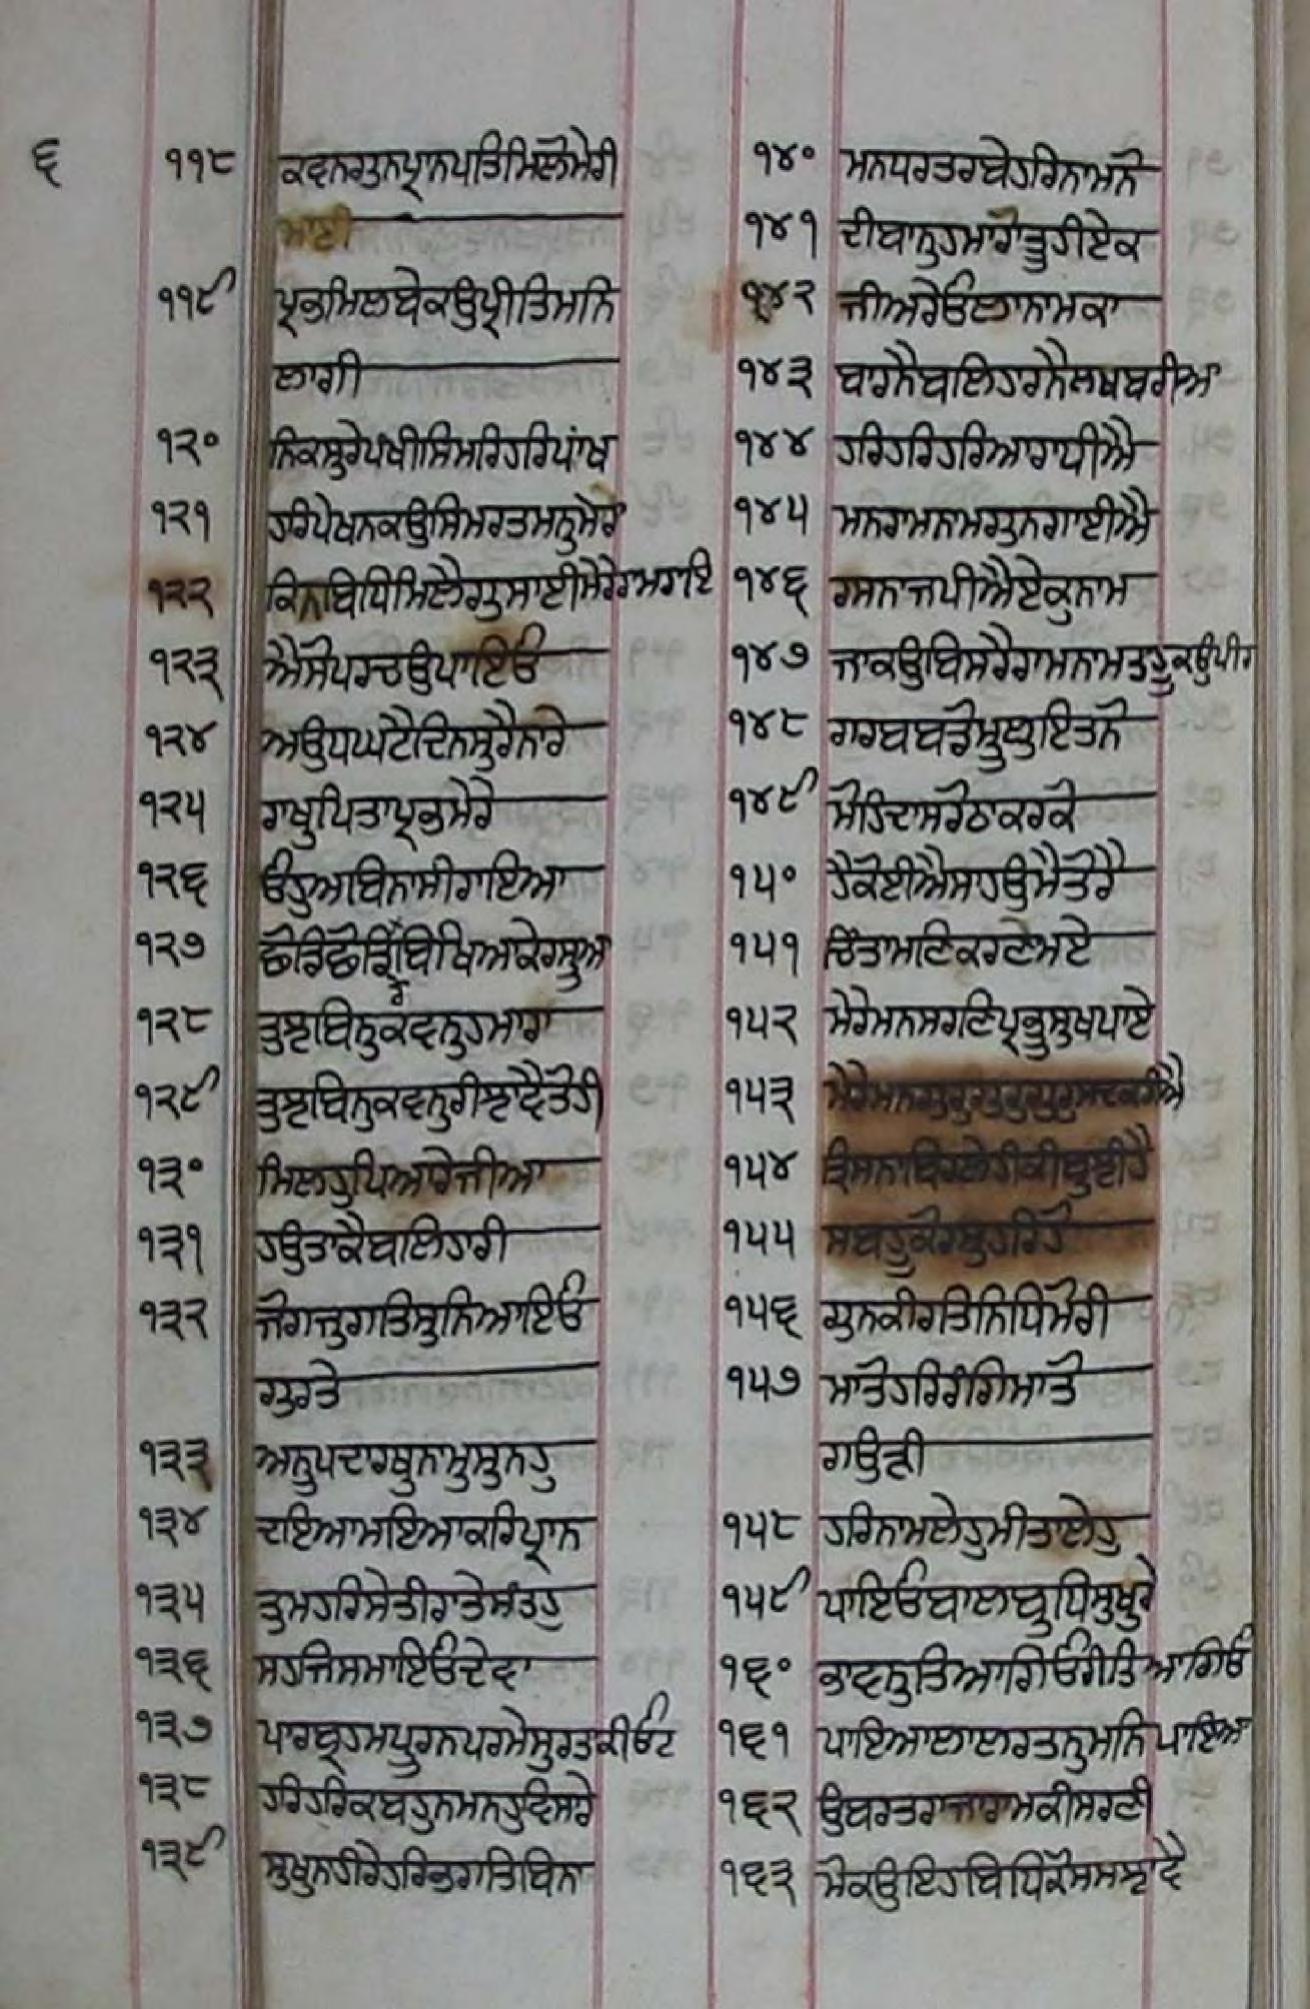 ੬
੧੧੮ ਕਵਨਗੁਨਪ੍ਰਾਨਪਤਿਮਿਲੋਮੇਰੀ
ਮਾਈ
੧੧੯ ਪ੍ਰਭਮਿਲਬੇਕਉਪ੍ਰੀਤਿਮਨਿ
ਲਾਗੀ
੧੨੦ ਨਿਕਸੁਰੇਪੰਖੀਸਿਮਰਿਹਰਿਪਾਂਖ
੧੨੧ ਹਰਿਪੇਖਨਕਉਸਿਮਰਤਮਨੁਮੇਰਾ
੧੨੨ ਕਿਨਬਿਧਿਮਿਲੈਗੁਸਾਈਮੇਰੇਰਾਮਰਾਇ
੧੨੩ ਐਸੋਪਰਚਉਪਾਇਓ
੧੨੪ ਅਉਧਘਟੈਦਿਨਸੁਰੈਨਾਰੇ
੧੨੫ ਰਾਖੁਪਿਤਾਪ੍ਰਭਮੇਰੇ
੧੨੬ ਓਹੁਅਬਿਨਾਸੀਰਾਇਆ
੧੨੭ ਛੋਡਿਛੋਡਿਰੇਬਿਖਿਆਕੇਰਸੂਆ
੧੨੮ ਤੁਝਬਿਨੁਕਵਨੁਹਮਾਰਾ
੧੨੯ ਤੁਝਬਿਨੁਕਵਨੁਰੀਝਾਵੈਤੋਹੀ
੧੩੦ ਮਿਲਹੁਪਿਆਰੇਜੀਆ
੧੩੧ ਹਉਤਾਕੈਬਲਿਹਾਰੀ
੧੩੨ ਜੋਗਜੁਗਤਿਸੁਨਿਆਇਓ
ਗੁਰਤੇ
੧੩੩ ਅਨੂਪਪਦਾਰਥੁਨਾਮੁਸੁਨਹੁ
੧੩੪ ਦਇਆਮਇਆਕਰਿਪ੍ਰਾਨ
੧੩੫ ਤੁਮਹਰਿਸੇਤੀਰਾਤੇਸੰਤਹੁ
੧੩੬ ਸਹਜਿਸਮਾਇਓਦੇਵਾ
੧੩੭ ਪਾਰਬ੍ਰਹਮਪੂਰਨਪਰਮੇਸੁਰਤਕੀਓਟ
੧੩੮ ਹਰਿਹਰਿਕਬਹੂਨਮਨਹੁਵਿਸਰੇ
੧੩੯ ਸੁਖੁਨਹੀਰੇਹਰਿਭਗਤਿਬਿਨਾ
੧੪੦ ਮਨਧਰਤਰਬੇਹਰਿਨਾਮਨੋ
੧੪੧ ਦੀਬਾਨੁਹਮਾਰੋਤੁਹੀਏਕ
੧੪੨ ਜੀਅਰੇਓਲਾਨਾਮਕਾ
੧੪੩ ਬਾਰਨੈਬਲਿਹਰਨੈਲਖਬਰੀਆ
੧੪੪ ਹਰਿਹਰਿਹਰਿਆਰਾਧੀਐ
੧੪੫ ਮਨਰਾਮਨਾਮਗੁਨਗਾਈਐ
੧੪੬ ਰਸਨਾਜਪੀਐਏਕੁਨਾਮ
੧੪੭ ਜਾਕਉਬਿਸਰੈਰਾਮਨਾਮਤਾਹੂਕਉਪੀਰ
੧੪੮ ਗਰਬਬਡੋਮੂਲੁਇਤਨੋ
੧੪੯ ਮੋਹਿਦਾਸਰੋਠਾਕਰਕੋ
੧੫੦ ਹੈਕੋਈਐਸਾਹਉਮੈਤੋਰੈ
੧੫੧ ਚਿੰਤਾਮਣਿਕਰੁਣਾਮਏ
੧੫੨ ਮੇਰੇਮਨਸਰਣਿਪ੍ਰਭੂਸੁਖਪਾਏ
੧੫੩ ਮੇਰੇਮਨਗੁਰੁਗੁਰੁਗੁਰੁਸਦਕਰੀਐ
੧੫੪ ਤ੍ਰਿਸਨਾਬਿਰਲੇਹੀਕੀਬੁਝੀਹੈ
੧੫੫ ਸਬਹੂਕੋਰਸੁਹਰਿਹੋ
੧੫੬ ਗੁਨਕੀਰਤਿਨਿਧਿਮੋਰੀ
੧੫੭ ਮਾਤੋਹਰਿਰੰਗਿਮਾਤੋ
ਗਉੜੀ
੧੫੮ ਹਰਿਨਾਮਲੇਹੁਮੀਤਾਲੇਹੁ
੧੫੯ ਪਾਇਓਬਾਲਬੁਧਿਸੁਖੁਰੇ
੧੬੦ ਭਾਵਨੁਤਿਆਗਿਓਰੀਤਿਆਗਿਓ
੧੬੧ ਪਾਇਆਲਾਲਰਤਨੁਮਨਿਪਾਇਆ
੧੬੨ ਉਬਰਤਰਾਜਾਰਾਮਕੀਸਰਣੀ
੧੬੩ ਮੋਕਉਇਹਬਿਧਿਕੋਸਮਝਾਵੈ